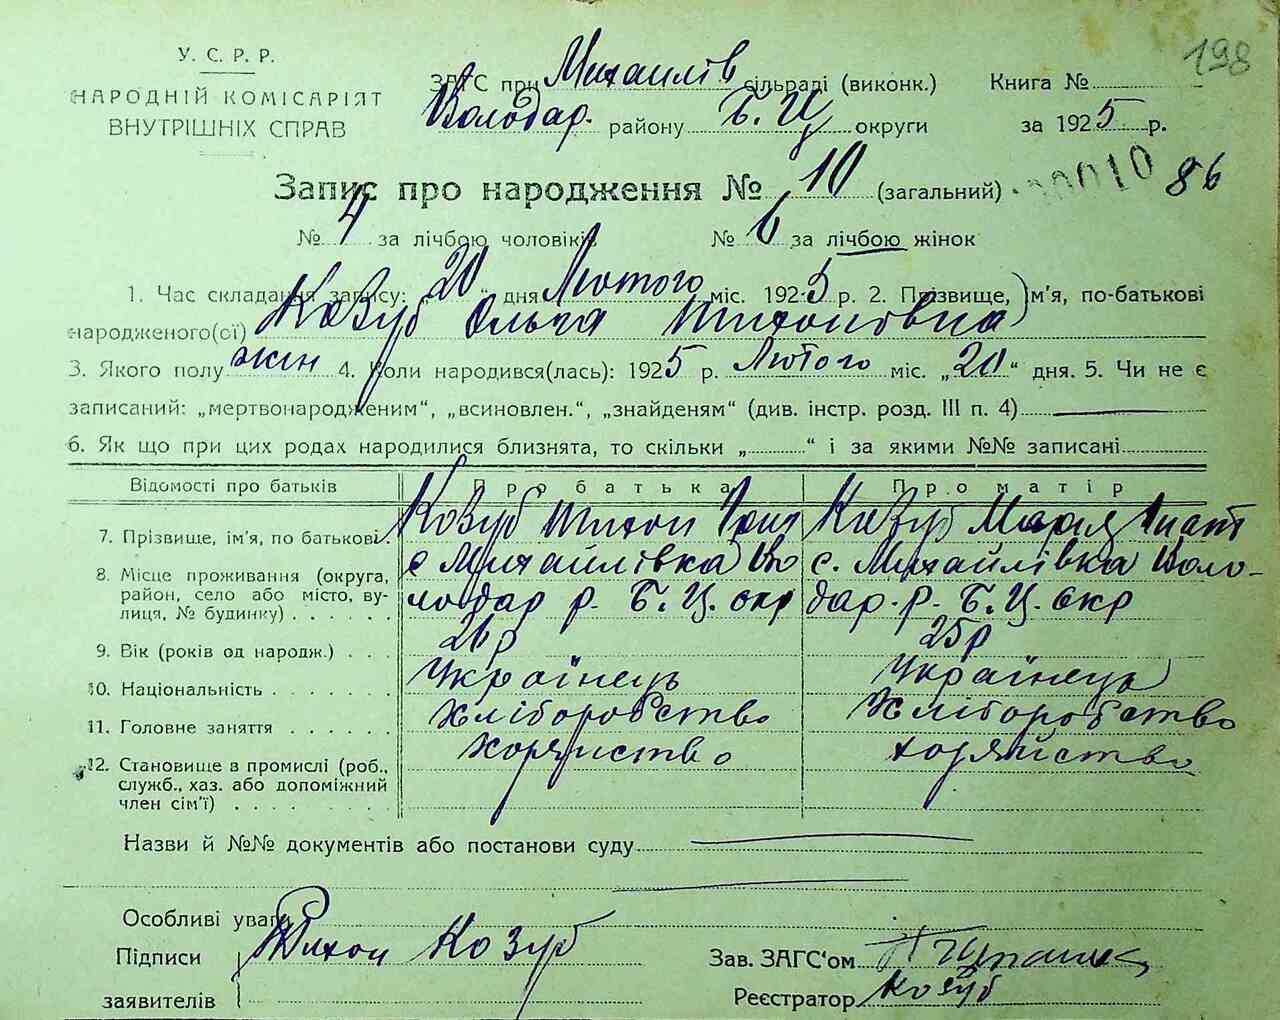 198
У. С. Р. Р.
НАРОДНІЙ КОМІСАРІЯТ
ВНУТРІШНІХ СПРАВ
ЗАГС при Михайлів сільраді (виконк.) Книга №
Володар. району Б. Ц округи за 1925 р.
Запис про народження № 10 (загальний) 00010 86
№ 4 за лічбою чоловіків № 6 за лічбою жінок
1. Час складання запису: „20" дня Лютого міс. 1925 р. 2. Прізвище, ім'я, по-батькові
народженого(сі) Козуб Ольга Тихоновна
3. Якого полу жін 4. Коли народився(лась): 1925 р. Лютого міс. „20" дня. 5. Чи не є
записаний: „мертвонародженим", „всиновлен.", „знайденям" (див. інстр. розд. III п. 4)
6. Як що при цих родах народилися близнята, то скільки „ " і за якими №№ записані
Відомості про батьків Про батька Про матір
7. Прізвище, ім'я, по батькові. Козуб Тихон Козуб Мария
8. Місце проживання (округа, с Михайлівка Во с. Михайлівка Воло-
район, село або місто, ву-
лиця, № будинку) лодар р. Б. Ц. окр дар. р. Б. Ц. окр
9. Вік (років од народж.) 26р 25р
10. Національність Українець Українець
11. Головне заняття хліборобство Хліборобство
12. Становище в промислі (роб., хозяйство хозяйство
служб., хаз. або допоміжний
член сім'ї)
Назви й №№ документів або постанови суду
Особливі уваги
Підписи Тихон Козуб Зав. ЗАГС'ом
заявителів Реєстратор Козуб